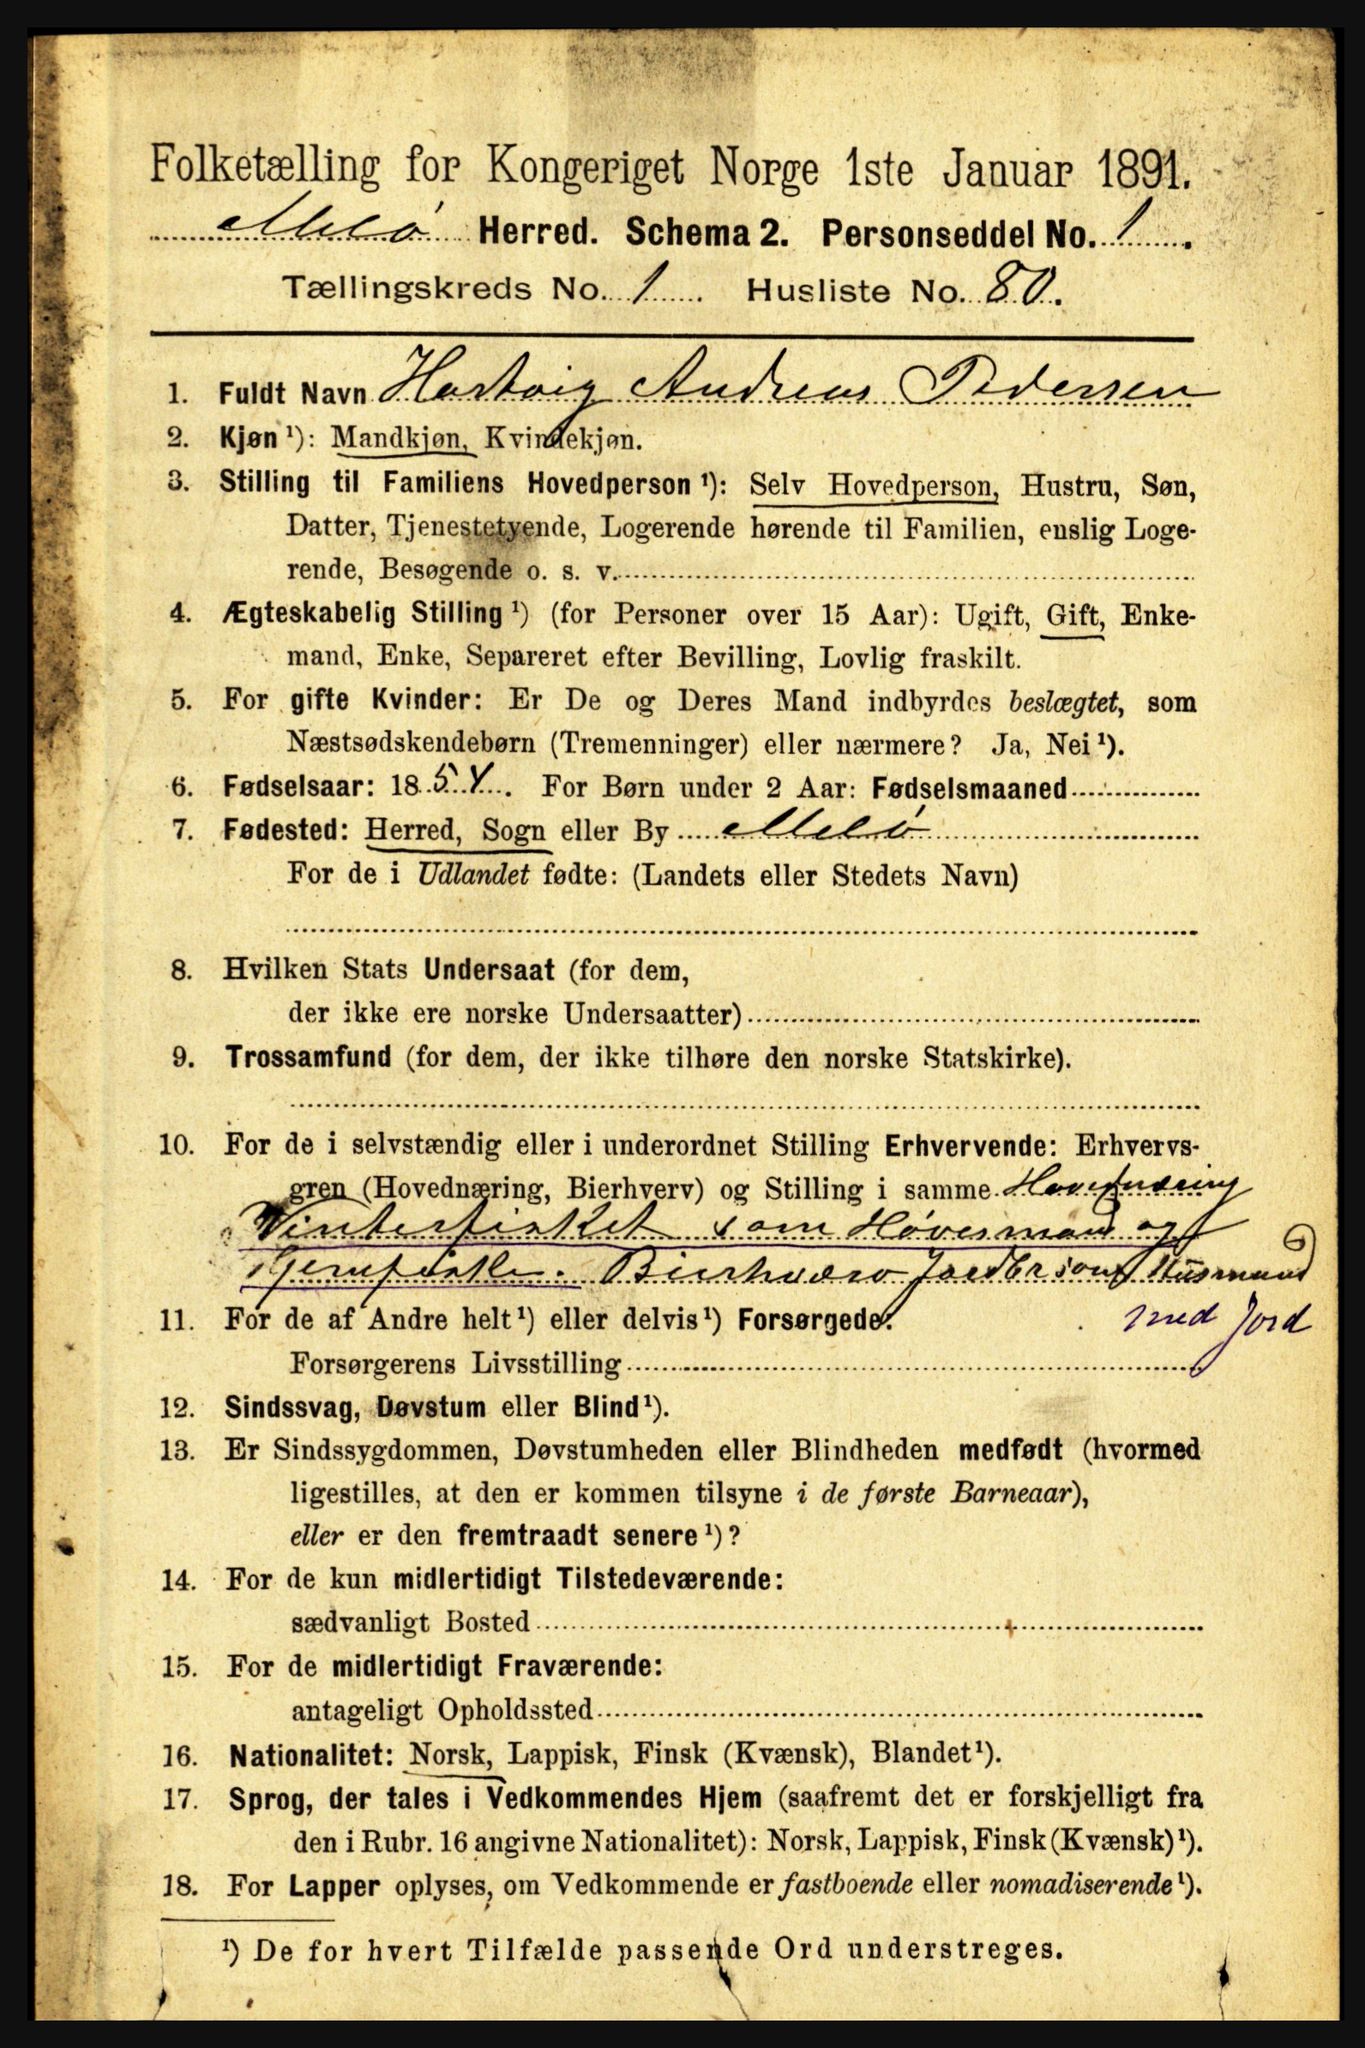 Folketælling for Kongeriget Norge 1ste Januar 1891.
Melø Herred. Schema 2. Personseddel No. 1.
Tællingskreds No. 1 Husliste No. 80.
1. Fuldt Navn Hartvig Andreas Pedersen
2. Kjøn ¹): Mandkjøn, Kvindekjøn.
3. Stilling til Familiens Hovedperson ¹): Selv Hovedperson, Hustru, Søn,
Datter, Tjenestetyende, Logerende hørende til Familien, enslig Loge-
rende, Besøgende o. s. v.
4. Ægteskabelig Stilling ¹) (for Personer over 15 Aar): Ugift, Gift, Enke-
mand, Enke, Separeret efter Bevilling, Lovlig fraskilt.
5. For gifte Kvinder: Er De og Deres Mand indbyrdes beslægtet, som
Næstsødskendebørn (Tremenninger) eller nærmere? Ja, Nei ¹).
6. Fødselsaar: 1854. For Børn under 2 Aar: Fødselsmaaned
7. Fødested: Herred, Sogn eller By Melø
For de i Udlandet fødte: (Landets eller Stedets Navn)
8. Hvilken Stats Undersaat (for dem,
der ikke ere norske Undersaatter)
9. Trossamfund (for dem, der ikke tilhøre den norske Statskirke).
10. For de i selvstændig eller i underordnet Stilling Erhvervende: Erhvervs-
gren (Hovednæring, Bierhverv) og Stilling i samme Hovednæring
Vinterfisket som Høvesmand og
Hjemfiske. Bierhverv Jordbr som Husmand
med Jord
11. For de af Andre helt ¹) eller delvis ¹) Forsørgede:
Forsørgerens Livsstilling
12. Sindssvag, Døvstum eller Blind ¹).
13. Er Sindssygdommen, Døvstumheden eller Blindheden medfødt (hvormed
ligestilles, at den er kommen tilsyne i de første Barneaar),
eller er den fremtraadt senere ¹)?
14. For de kun midlertidigt Tilstedeværende:
sædvanligt Bosted
15. For de midlertidigt Fraværende:
antageligt Opholdssted
16. Nationalitet: Norsk, Lappisk, Finsk (Kvænsk), Blandet ¹).
17. Sprog, der tales i Vedkommendes Hjem (saafremt det er forskjelligt fra
den i Rubr. 16 angivne Nationalitet): Norsk, Lappisk, Finsk (Kvænsk) ¹).
18. For Lapper oplyses, om Vedkommende er fastboende eller nomadiserende ¹).
¹) De for hvert Tilfælde passende Ord understreges.